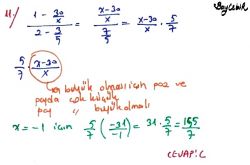 Beycanık
11/ (1 - 30/x) / (2 - 3/5) = ((x-30)/x) / (7/5) = (x-30)/x · 5/7
5/7 · (x-30)/x
en büyük olması için pay ve
payda çok küçük
pay " büyük olmalı
x = -1 için 5/7 (-31/-1) = 31 · 5/7 = 155/7
CEVAP: C